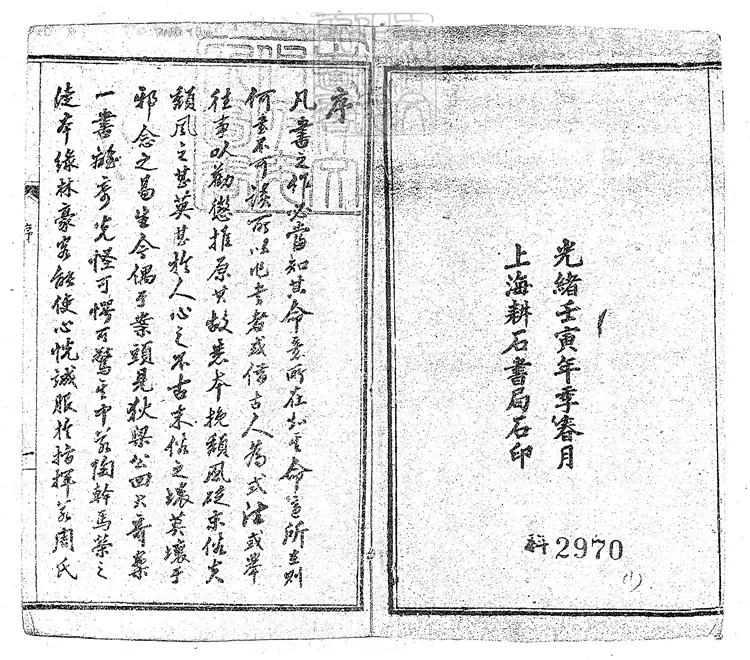 光緒壬寅年季春月
上海耕石書局石印
2970
(1)
序
凡書之作必當知其命意所在知其命意所在則
何書不可讀所以作書者或借古人為式法或舉
往事以勸懲推原其故悉本挽頹風砭末俗矣
頹風之甚莫甚於人心之不古末俗之壞莫壞乎
邪念之易生今偶于案頭見狄梁公四大奇案
一書離奇光怪可愕可驚其中若陶幹馬榮之
徒本綠林豪客能使心悅誠服於指揮若周氏
序
一